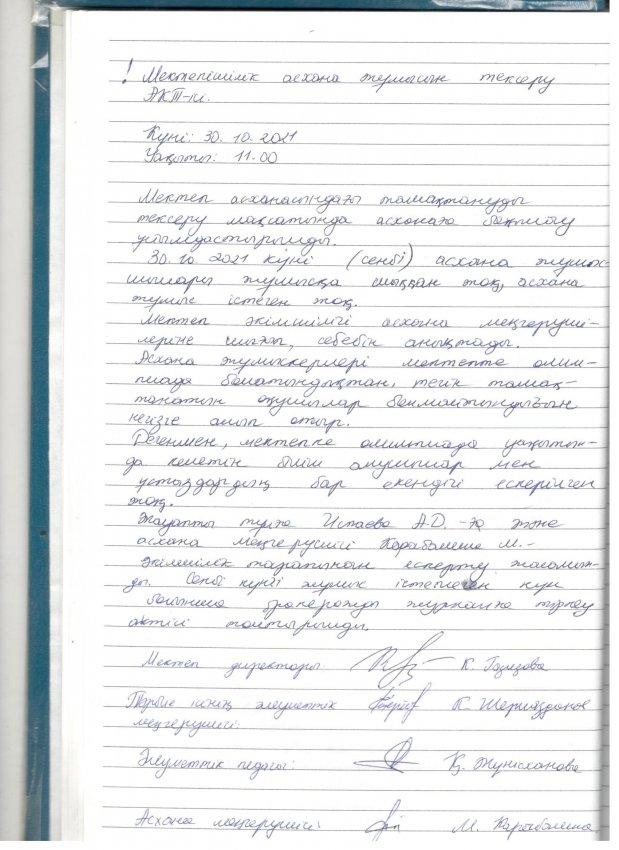 ! Мектепішілік асхана жұмысын тексеру
АКТ-ісі.
Күні: 30.10.2021
Уақыты: 11.00
Мектеп асханасындағы тамақтануды
тексеру мақсатында асханаға бақылау
ұйымдастырылды.
30.10.2021 күні (сенбі) асхана жұмыс-
шылары жұмысқа шыққан жоқ, асхана
жұмыс істеген жоқ.
Мектеп әкімшілігі асхана меңгеруші-
леріне шығып, себебін анықтады.
Асхана жұмыскерлері мектепте олим-
пиада болатындықтан, тегін тамақ-
танатын оқушылар болмайтындығын
негізге алып отыр.
Дегенмен, мектепке олимпиада уақытын-
да келетін білім алушылар мен
ұстаздардың бар екендігі ескерілген
жоқ.
Жауапты тұлға Испаева А.Д. -ға және
асхана меңгерушісі Карабалина М.-
Әкімшілік тарапынан ескерту жасалын-
ды. Сенбі күнгі жұмыс істемеген күн
бойынша бракераж журналға тіркеу
актісі толтырылды.
Мектеп директоры: К. Газизова
Тәрбие ісінің әлеуметтік К. Шериязданов
меңгерушісі:
Әлеуметтік педагог: Қ. Жүнісханова
Асхана меңгерушісі: М. Карабалина